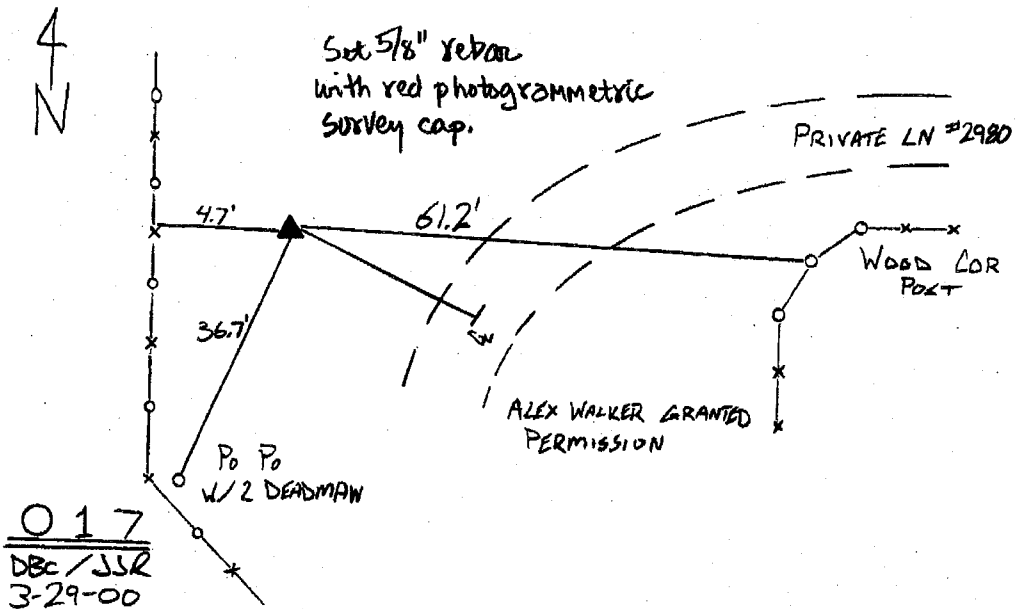 N
Set 5/8" rebar
with red photogrammetric
survey cap.
PRIVATE LN #2980
4.7'
61.2'
WOOD COR
POST
36.7'
ALEX WALKER GRANTED
PERMISSION
Po Po
W/2 DEADMAN
017
DBC/JJR
3-29-00